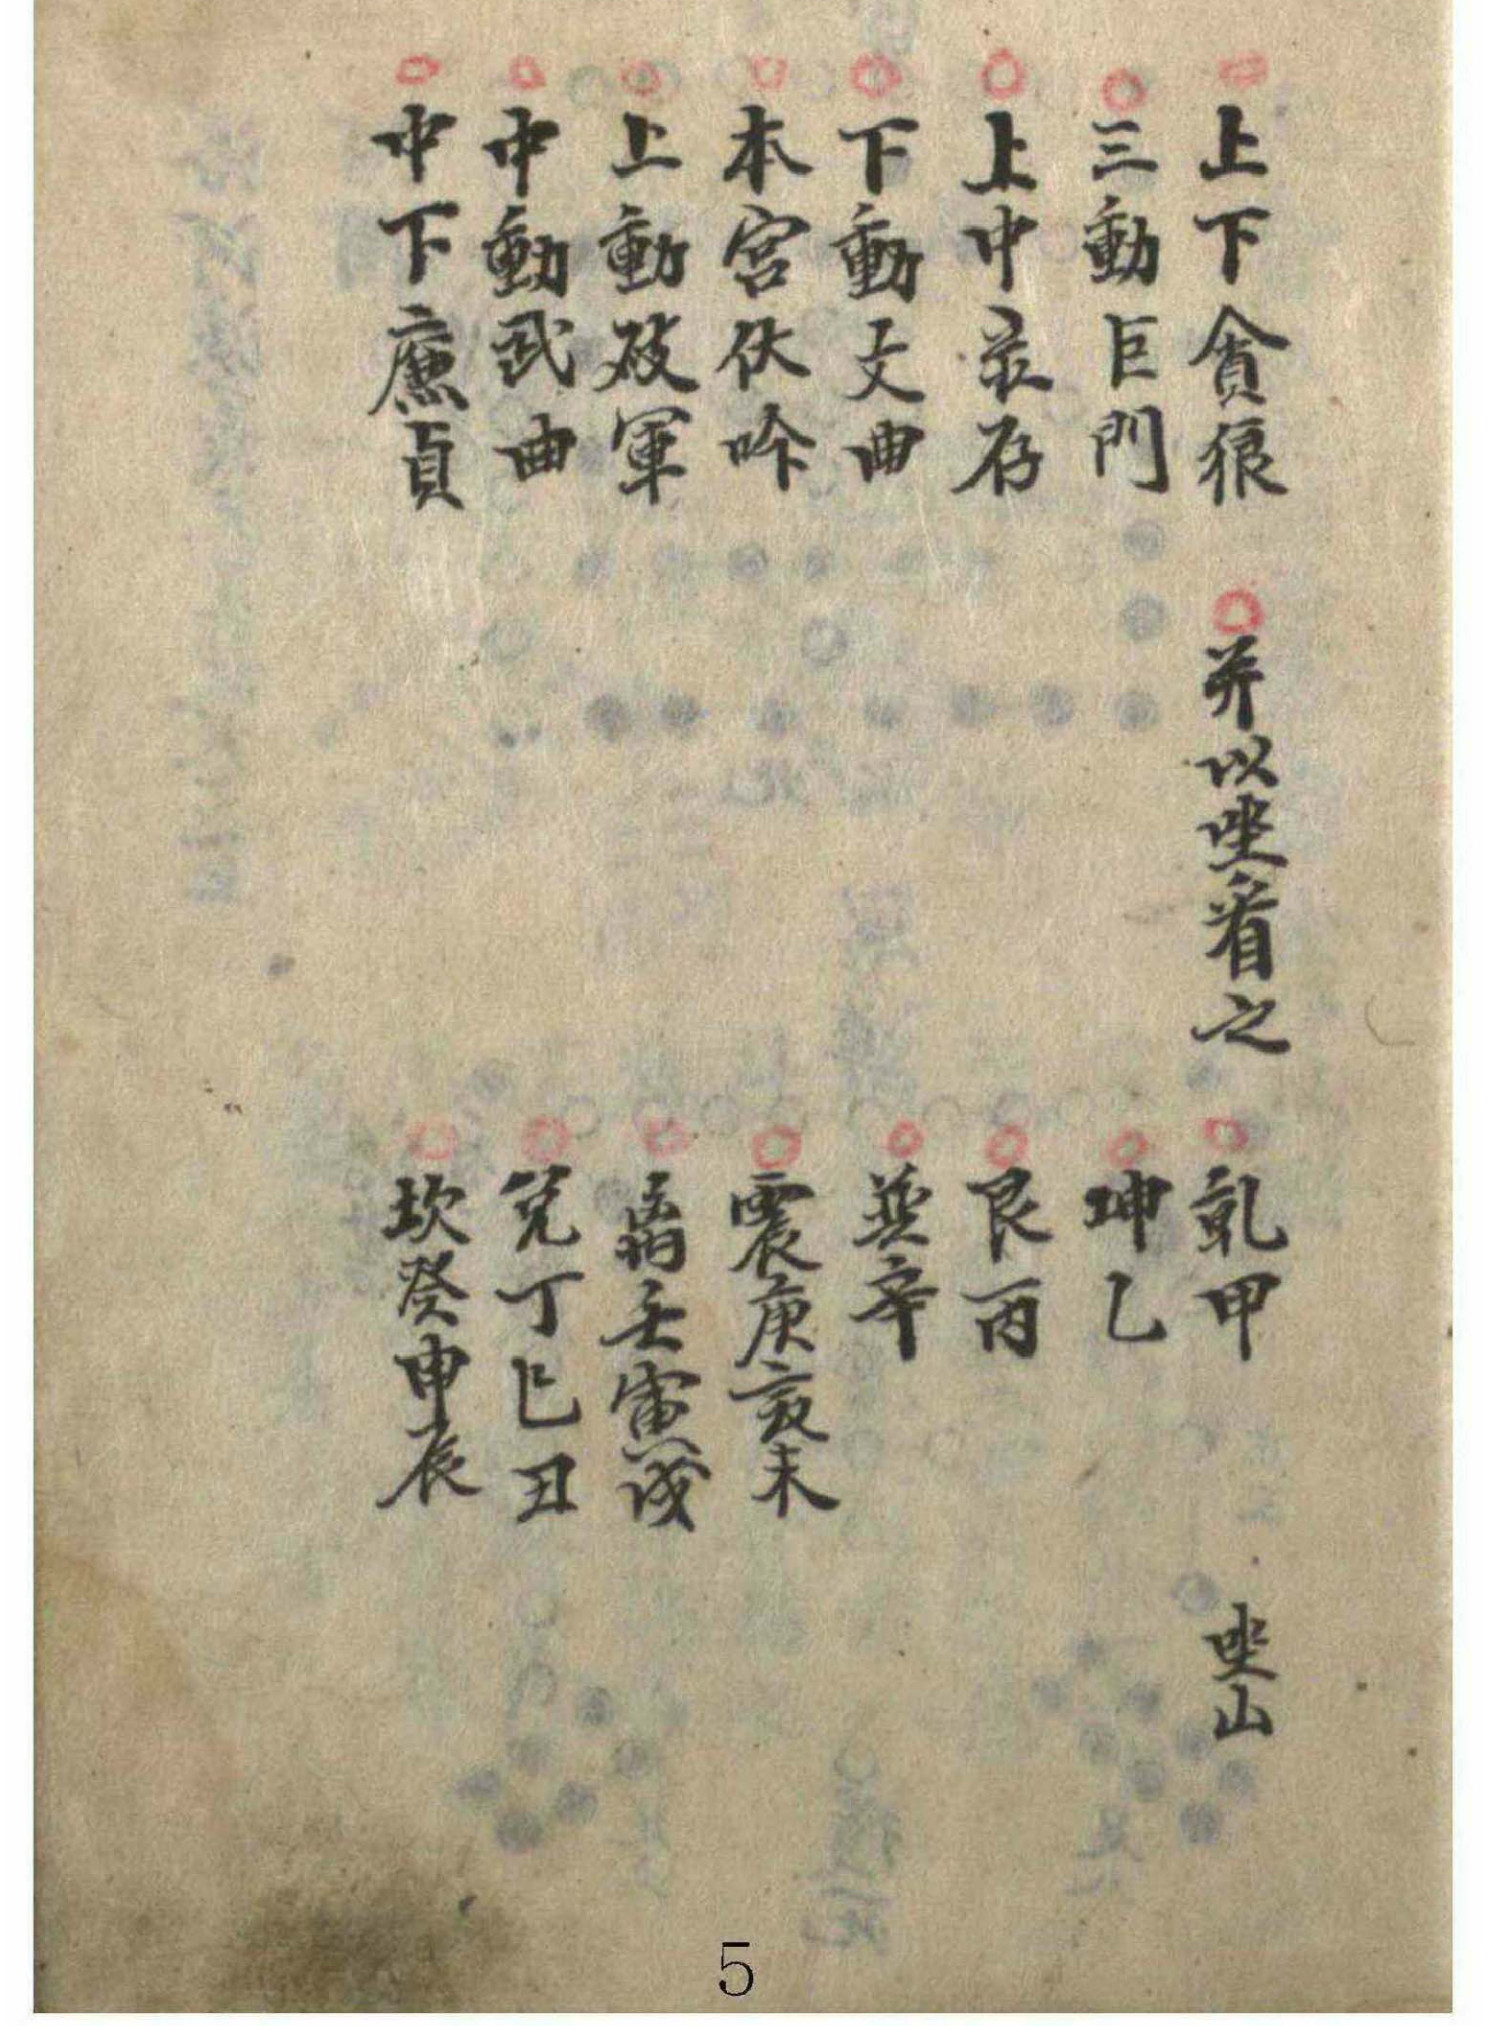 上下貪狼
三動巨門
上中彔存
下動文曲
本宮伏吟
上動破軍
中動武曲
中下廉貞
并以坐看之
乾甲
坤乙
艮丙
巽辛
震庚亥未
离壬寅戌
兌丁巳丑
坎癸申辰
坐山
5